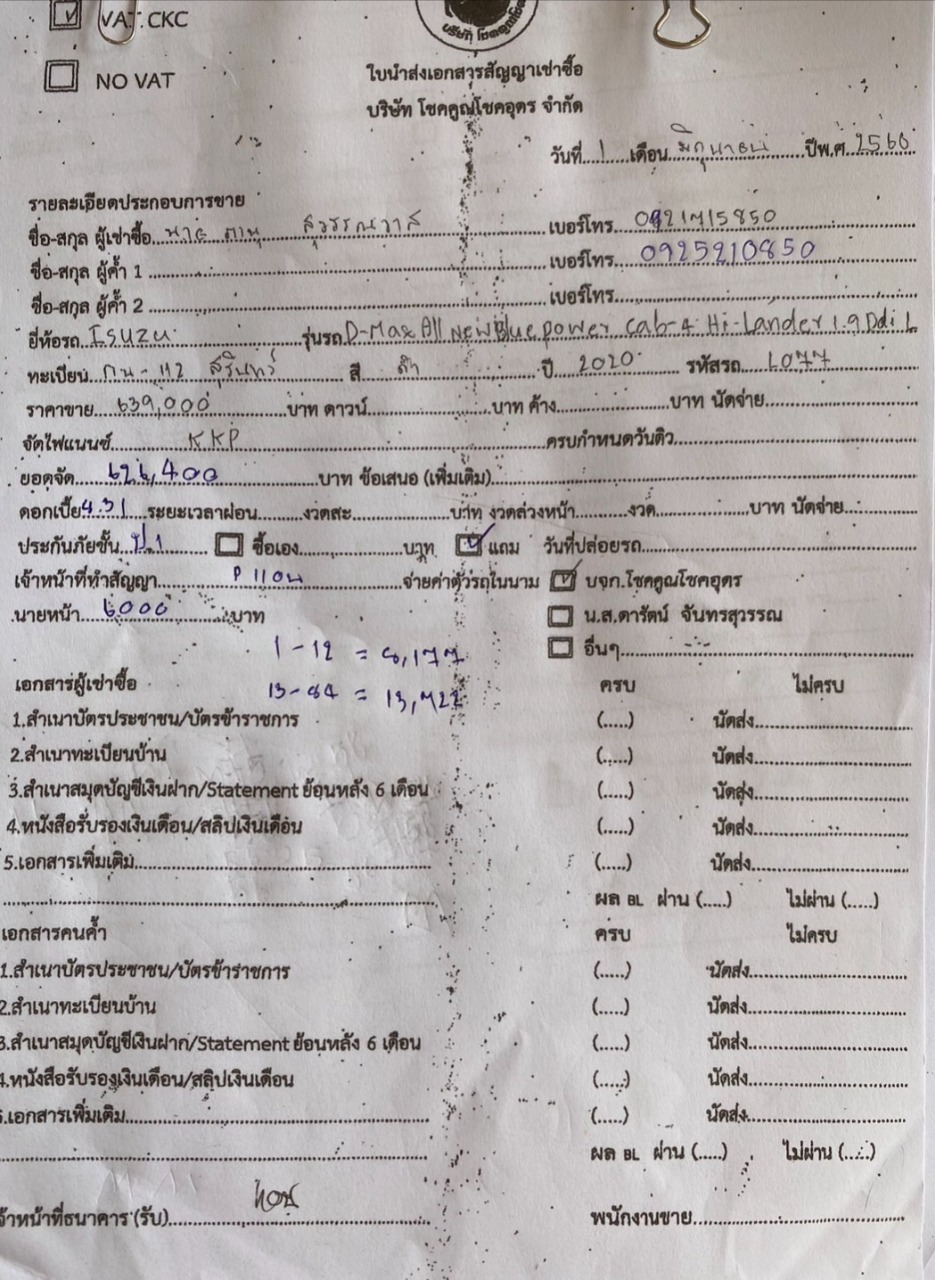 VAT CKC
NO VAT
บริษัท
ใบนำส่งเอกสารสัญญาเช่าซื้อ
บริษัท โชคคูณโชคอุดร จำกัด
วันที่ 1 เดือน มิถุนายน ปีพ.ศ. 2566
รายละเอียดประกอบการขาย
ชื่อ-สกุล ผู้เช่าซื้อ นาย สุวรรณวาส เบอร์โทร 0921715850
ชื่อ-สกุล ผู้ค้ำ 1 เบอร์โทร 0925210850
ชื่อ-สกุล ผู้ค้ำ 2 เบอร์โทร
ยี่ห้อรถ ISUZU รุ่นรถ D-Max All New Blue power Cab-4 Hi-Lander 1.9 Ddi L
ทะเบียน กน-112 สุรินทร์ สี ดำ ปี 2020 รหัสรถ L077
ราคาขาย 639,000 บาท ดาวน์ บาท ค้าง บาท นัดจ่าย
จัดไฟแนนซ์ KKP ครบกำหนดวันคิว
ยอดจัด 626,400 บาท ข้อเสนอ (เพิ่มเติม)
ดอกเบี้ย 4.31 ระยะเวลาผ่อน งวดละ บาท งวดล่วงหน้า งวด บาท นัดจ่าย
ประกันภัยชั้น ป.1 ซื้อเอง บาท แถม วันที่ปล่อยรถ
เจ้าหน้าที่ทำสัญญา จ่ายค่าตัวรถในนาม บจก.โชคคูณโชคอุดร
นายหน้า 6000 บาท น.ส.ดารัตน์ จันทรสุวรรณ
1-12 = 8,177 อื่นๆ
13-84 = 13,722
เอกสารผู้เช่าซื้อ ครบ ไม่ครบ
1.สำเนาบัตรประชาชน/บัตรข้าราชการ (.....) นัดส่ง
2.สำเนาทะเบียนบ้าน (.....) นัดส่ง
3.สำเนาสมุดบัญชีเงินฝาก/Statement ย้อนหลัง 6 เดือน (.....) นัดส่ง
4.หนังสือรับรองเงินเดือน/สลิปเงินเดือน (.....) นัดส่ง
5.เอกสารเพิ่มเติม (.....) นัดส่ง
ผล BL ผ่าน (.....) ไม่ผ่าน (.....)
เอกสารคนค้ำ ครบ ไม่ครบ
1.สำเนาบัตรประชาชน/บัตรข้าราชการ (.....) นัดส่ง
2.สำเนาทะเบียนบ้าน (.....) นัดส่ง
3.สำเนาสมุดบัญชีเงินฝาก/Statement ย้อนหลัง 6 เดือน (.....) นัดส่ง
4.หนังสือรับรองเงินเดือน/สลิปเงินเดือน (.....) นัดส่ง
5.เอกสารเพิ่มเติม (.....) นัดส่ง
ผล BL ผ่าน (.....) ไม่ผ่าน (.....)
จ้าหน้าที่ธนาคาร (รับ) พนักงานขาย